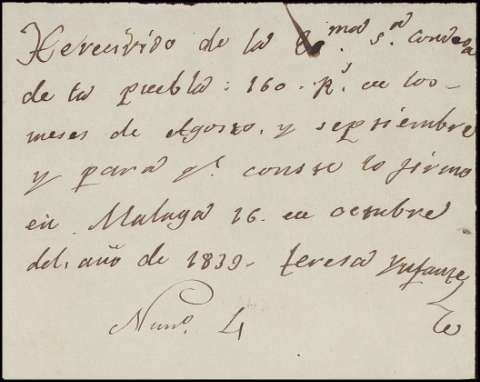 He recivido de la Exma. Sra. condesa
de la puebla: 160. Rs. en los
meses de Agosto. y septiembre
y para qe. conste lo firmo
en Malaga 16. en octubre
del. año de 1839- teresa Ynfante
Numo. 4